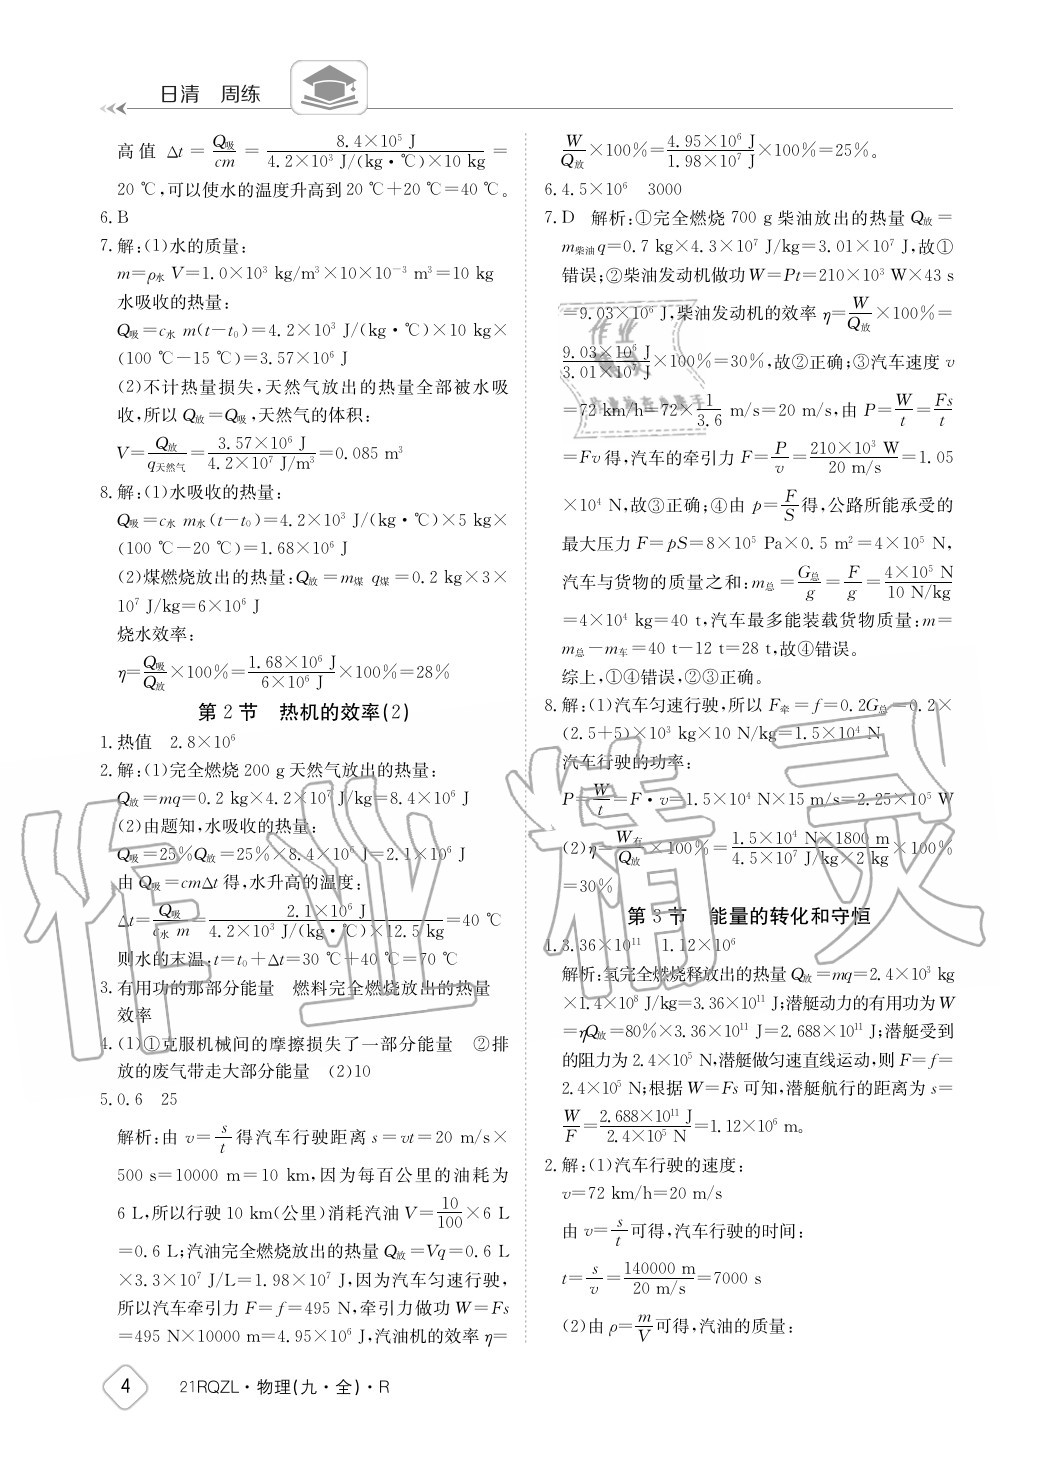 日清 周练
高值 Δt = Q吸/cm = 8.4×10⁵ J/4.2×10³ J/(kg·℃)×10 kg =
20 ℃,可以使水的温度升高到 20 ℃+20 ℃=40 ℃。
6. B
7. 解:(1)水的质量:
m=ρ水 V=1.0×10³ kg/m³×10×10⁻³ m³=10 kg
水吸收的热量:
Q吸=c水 m(t-t₀)=4.2×10³ J/(kg·℃)×10 kg×
(100 ℃-15 ℃)=3.57×10⁶ J
(2)不计热量损失,天然气放出的热量全部被水吸
收,所以 Q放=Q吸,天然气的体积:
V=Q放/q天然气=3.57×10⁶ J/4.2×10⁷ J/m³=0.085 m³
8. 解:(1)水吸收的热量:
Q吸=c水 m水(t-t₀)=4.2×10³ J/(kg·℃)×5 kg×
(100 ℃-20 ℃)=1.68×10⁶ J
(2)煤燃烧放出的热量:Q放=m煤 q煤=0.2 kg×3×
10⁷ J/kg=6×10⁶ J
烧水效率:
η=Q吸/Q放×100%=1.68×10⁶ J/6×10⁶ J×100%=28%
第 2 节 热机的效率(2)
1. 热值 2.8×10⁶
2. 解:(1)完全燃烧 200 g 天然气放出的热量:
Q放=mq=0.2 kg×4.2×10⁷ J/kg=8.4×10⁶ J
(2)由题知,水吸收的热量:
Q吸=25%Q放=25%×8.4×10⁶ J=2.1×10⁶ J
由 Q吸=cmΔt 得,水升高的温度:
Δt=Q吸/c水 m=2.1×10⁶ J/4.2×10³ J/(kg·℃)×12.5 kg=40 ℃
则水的末温:t=t₀+Δt=30 ℃+40 ℃=70 ℃
3. 有用功的那部分能量 燃料完全燃烧放出的热量
效率
4. (1)①克服机械间的摩擦损失了一部分能量 ②排
放的废气带走大部分能量 (2)10
5. 0.6 25
解析:由 v=s/t 得汽车行驶距离 s=vt=20 m/s×
500 s=10000 m=10 km,因为每百公里的油耗为
6 L,所以行驶 10 km(公里)消耗汽油 V=10/100×6 L
=0.6 L;汽油完全燃烧放出的热量 Q放=Vq=0.6 L
×3.3×10⁷ J/L=1.98×10⁷ J,因为汽车匀速行驶,
所以汽车牵引力 F=f=495 N,牵引力做功 W=Fs
=495 N×10000 m=4.95×10⁶ J,汽油机的效率 η=
W/Q放×100%=4.95×10⁶ J/1.98×10⁷ J×100%=25%。
6. 4.5×10⁶ 3000
7. D 解析:①完全燃烧 700 g 柴油放出的热量 Q放=
m柴油q=0.7 kg×4.3×10⁷ J/kg=3.01×10⁷ J,故①
错误;②柴油发动机做功 W=Pt=210×10³ W×43 s
=9.03×10⁶ J,柴油发动机的效率 η=W/Q放×100%=
9.03×10⁶ J/3.01×10⁷ J×100%=30%,故②正确;③汽车速度 v
=72 km/h=72×1/3.6 m/s=20 m/s,由 P=W/t=Fs/t
=Fv 得,汽车的牵引力 F=P/v=210×10³ W/20 m/s=1.05
×10⁴ N,故③正确;④由 p=F/S得,公路所能承受的
最大压力 F=pS=8×10⁵ Pa×0.5 m²=4×10⁵ N,
汽车与货物的质量之和:m总=G总/g=F/g=4×10⁵ N/10 N/kg
=4×10⁴ kg=40 t,汽车最多能装载货物质量:m=
m总-m车=40 t-12 t=28 t,故④错误。
综上,①④错误,②③正确。
8. 解:(1)汽车匀速行驶,所以 F牵=f=0.2G总=0.2×
(2.5+5)×10³ kg×10 N/kg=1.5×10⁴ N
汽车行驶的功率:
P=W/t=F·v=1.5×10⁴ N×15 m/s=2.25×10⁵ W
(2)η=W有/Q放×100%=1.5×10⁴ N×1800 m/4.5×10⁷ J/kg×2 kg×100%
=30%
第 3 节 能量的转化和守恒
1. 3.36×10¹¹ 1.12×10⁶
解析:氢完全燃烧释放出的热量 Q放=mq=2.4×10³ kg
×1.4×10⁸ J/kg=3.36×10¹¹ J;潜艇动力的有用功为 W
=ηQ放=80%×3.36×10¹¹ J=2.688×10¹¹ J;潜艇受到
的阻力为 2.4×10⁵ N,潜艇做匀速直线运动,则 F=f=
2.4×10⁵ N;根据 W=Fs 可知,潜艇航行的距离为 s=
W/F=2.688×10¹¹ J/2.4×10⁵ N=1.12×10⁶ m。
2. 解:(1)汽车行驶的速度:
v=72 km/h=20 m/s
由 v=s/t可得,汽车行驶的时间:
t=s/v=140000 m/20 m/s=7000 s
(2)由 ρ=m/V可得,汽油的质量:
4 21RQZL·物理(九·全)·R
作业精灵